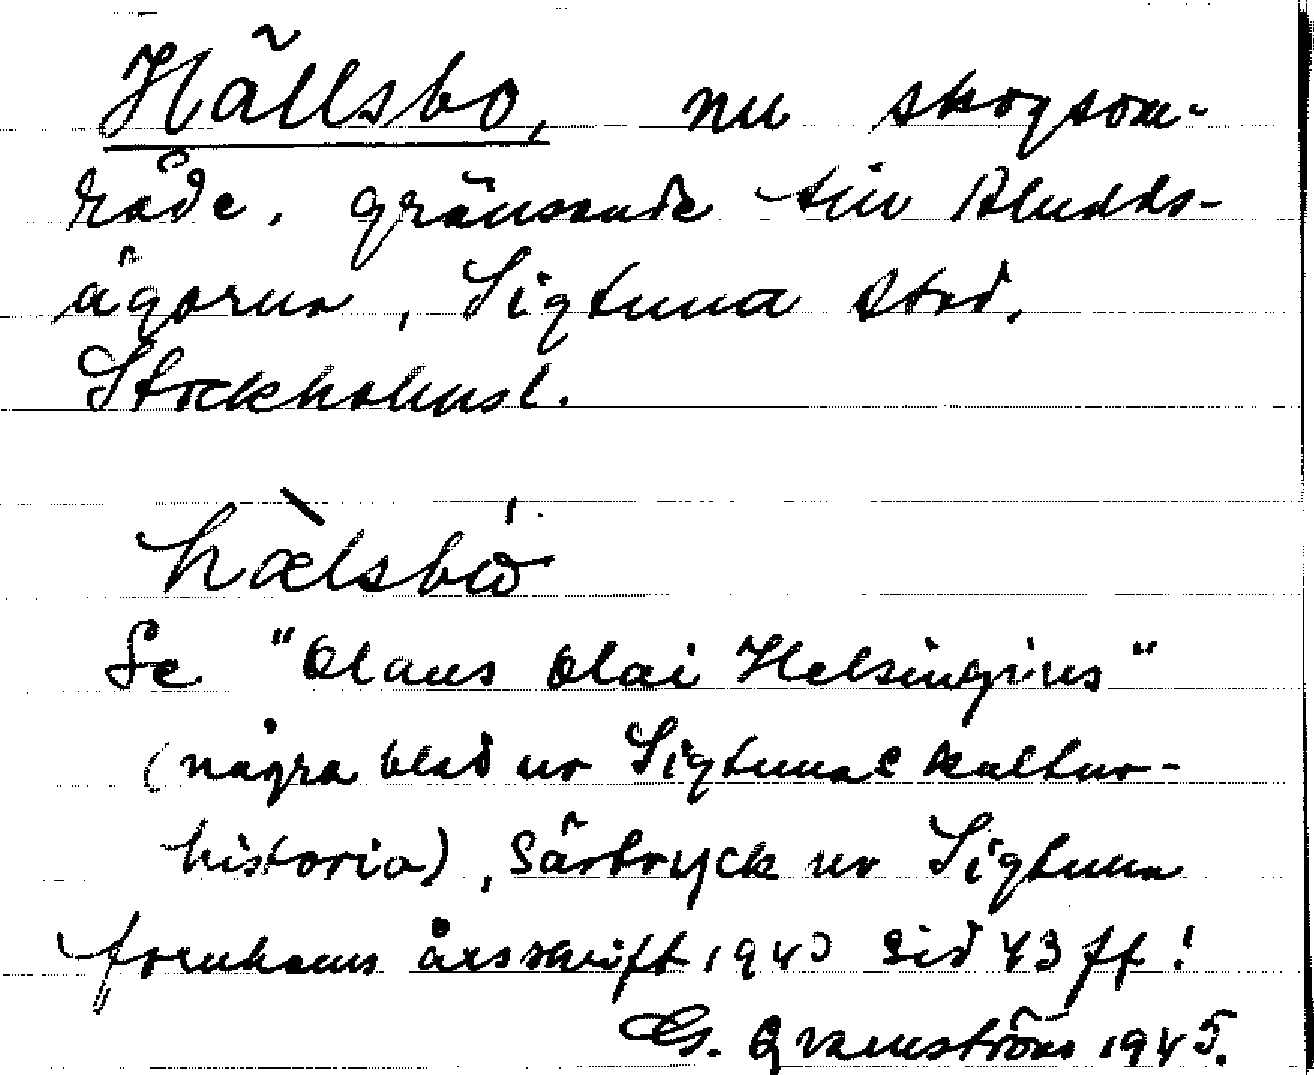 Hällsbo, nu skogsom-
råde, gränsande till Rludds-
ägorna, Sigtuna stad.
Stockholmsl.
hæ̀lsbὼ
Se "Olaus Olai Helsingius"
(några blad ur Sigtunas kultur-
historia), Särtryck ur Sigtuna
fornhems årsskrift 1943 sid 43 ff!
G. Qvarnström 1945.